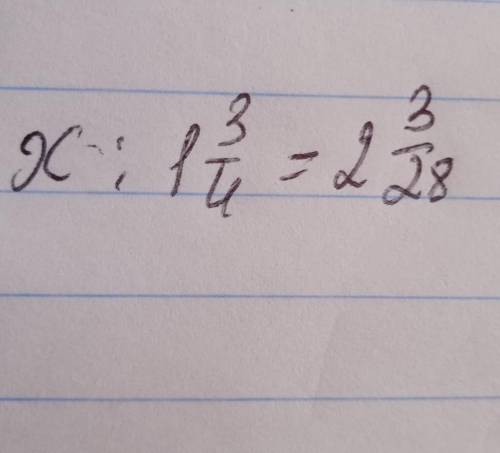 x : 1 3/4 = 2 3/28